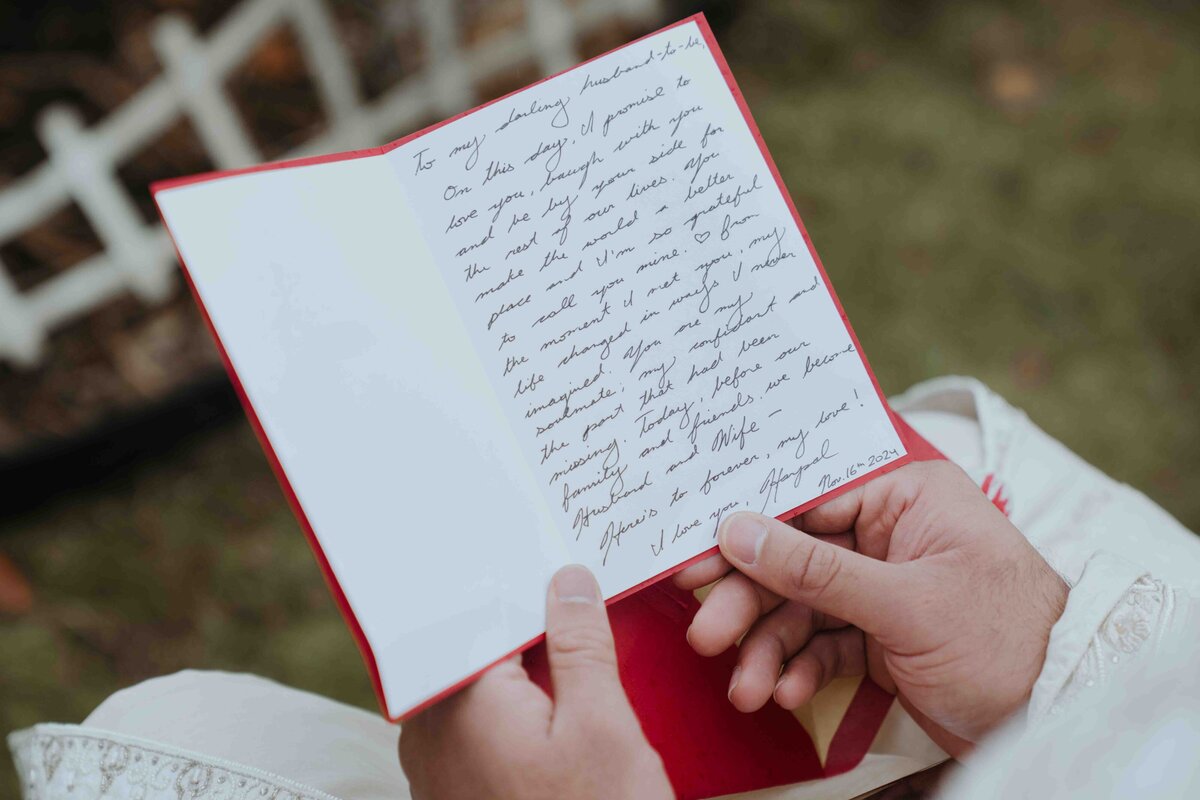 To my darling husband-to-be,
On this day, I promise to
love you, laugh with you
and be by your side for
the rest of our lives. You
make the world a better
place and I'm so grateful
to call you mine. ♡ From
the moment I met you, my
life changed in ways I never
imagined. You are my
soulmate; my confidant and
the part that had been
missing. Today, before our
family and friends, we become
Husband and Wife -
Here's to forever, my love!
I love you, Harpal
Nov. 16th 2024